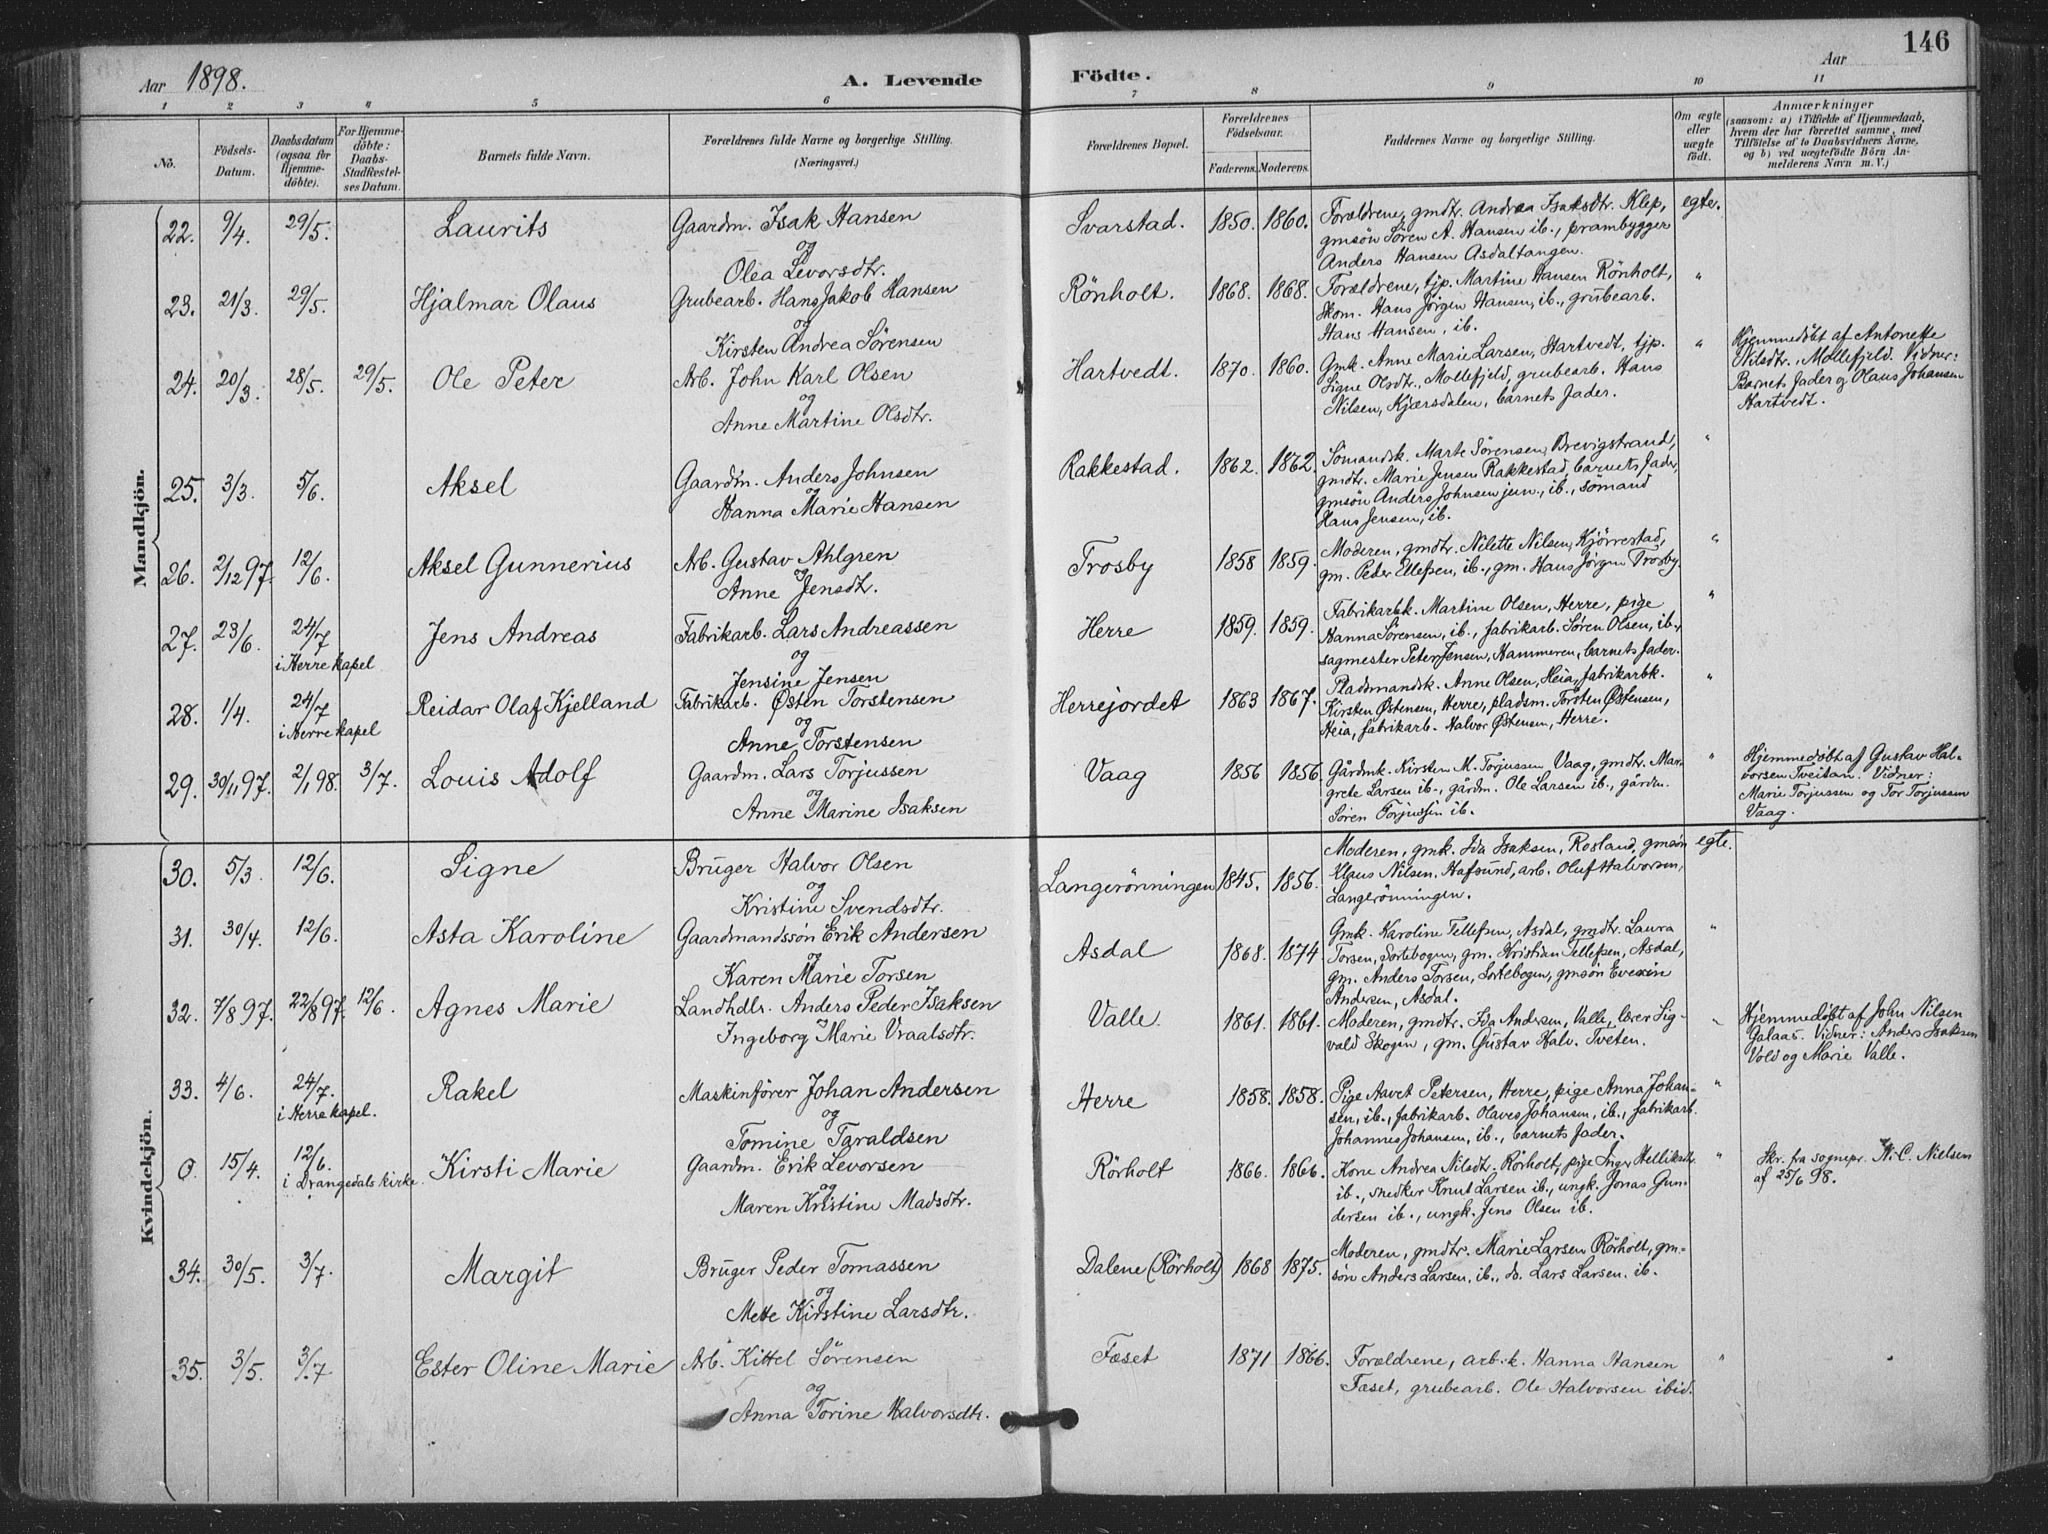 146
Aar 1898.
A. Levende Födte.
Aar
1 2 3 4 5 6 7 8 9 10 11
No.
Födsels-Datum.
Daabsdatum (ogsaa for Hjemmedöbte).
For Hjemmedöbte: Daabs-Stadfæstelses Datum.
Barnets fulde Navn.
Forældrenes fulde Navne og borgerlige Stilling. (Næringsvei.)
Forældrenes Bopæl.
Forældrenes Födselsaar.
Faderens. Moderens.
Faddernes Navne og borgerlige Stilling.
Om ægte eller uægte födt.
Anmærkninger
(saasom: a) i Tilfælde af Hjemmedaab, hvem der har forrettet samme, med Tilföielse af to Daabsvidners Navne, og b) ved uægtefödte Börn Anmelderens Navn m. V.)
Mandkjön.
22. 9/4. 29/5. Laurits
Gaardm. Isak Hansen
og
Olea Levorsdtr.
Svarstad. 1850. 1860.
Forældrene, gmdtr. Andrea Isaksdtr. Klep,
gmsön Sören A. Hansen ib., prambygger
Anders Hansen Asdaltangen.
egte.
23. 21/3. 29/5. Hjalmar Olaus
Grubearb. Hans Jakob Hansen
og
Kirsten Andrea Sørensen
Rönholt. 1868. 1868.
Forældrene, tjp. Martine Hansen Rönholt,
skom. Hans Jörgen Hansen, ib., grubearb.
Hans Hansen, ib.
"
24. 20/3. 28/5. 29/5. Ole Peter
Arb. John Karl Olsen
og
Anne Martine Olsdtr.
Hartvedt. 1870. 1860.
Gmk. Anne Marie Larsen, Hartvedt, tjp.
Signe Olsdtr., Mollefjeld, grubearb. Hans
Nilsen, Kjærsdalen, barnets fader.
"
Hjemmedøbt af Antonette
Nilsdtr. Mollefjeld. Vidner:
Barnets fader og Olaus Johansen
Hartvedt.
25. 3/3. 5/6. Aksel
Gaardm. Anders Johnsen
og
Hanna Marie Hansen
Rakkestad. 1862. 1862.
Sömandsk. Marte Sörensen, Brevigstrand,
gmdtr. Marie Jensen Rakkestad, barnets fader,
gmsön Anders Johnsen jun., ib., sömand
Hans Jensen, ib.
"
26. 2/12 97. 12/6. Aksel Gunnerius
Arb. Gustav Ahlgren
og
Anne Jensdtr.
Trosby 1858 1859.
Moderen, gmdtr. Nilette Nilsen, Kjörrestad,
gm. Peder Ellefsen, ib., gm. Hans Jörgen Trosby.
"
27. 23/6. 24/7 i Herre kapel Jens Andreas
Fabrikarb. Lars Andreassen
og
Jensine Jensen
Herre 1859. 1859.
Fabrikarbk. Martine Olsen, Herre, pige
Hanna Sörensen, ib., fabrikarb. Sören Olsen, ib.,
sagmester Peter Jensen, Hammeren, barnets fader.
"
28. 1/4. 24/7 i Herre kapel Reidar Olaf Kjelland
Fabrikarb. Østen Torstensen
og
Anne Torstensen
Herrejordet 1863 1867.
Pladsmandsk. Anne Olsen, Heia, fabrikarbk.
Kirsten Østensen, Herre, pladsm. Torsten Østensen,
Heia, fabrikarb. Halvor Østensen, Herre.
"
29. 30/11 97. 2/1 98. 3/7. Louis Adolf
Gaardm. Lars Torjussen
og
Anne Marine Isaksen
Vaag 1856 1856.
Gårdmk. Kirsten M. Torjussen Vaag, gmdtr. Margrete
Larsen ib., gårdm. Ole Larsen ib., gårdm.
Sören Torjussen ib.
"
Hjemmedøbt af Gustav Halvorsen
Tveitan. Vidner:
Marie Torjussen og Tor Torjussen
Vaag.
Kvindekjön.
30. 5/3. 12/6. Signe
Bruger Halvor Olsen
og
Kristine Svendsdtr.
Langerönningen 1845. 1856.
Moderen, gmk. Ida Isaksen, Rosland, gmsön
Klaus Nilsen, Hafsund, arb. Oluf Halvorsen,
Langerönningen.
egte.
31. 30/4. 12/6. Asta Karoline
Gaardmandssön Erik Andersen
og
Karen Marie Torsen
Asdal 1868. 1874
Gmk. Karoline Tellefsen, Asdal, gmdtr. Laura
Torsen, Sortebogen, gm. Kristian Tellefsen, Asdal,
gm. Anders Torsen, Sortebogen, gmsön Evenin
Andersen, Asdal.
"
32. 7/8 97. 22/8 97. 12/6. Agnes Marie
Landhdlr. Anders Peder Isaksen
og
Ingeborg Marie Vraalsdtr.
Valle. 1861. 1861.
Moderen, gmdtr. Ida Andersen, Valle, lærer Sigvald
Skogen, gm. Gustav Halv. Tveten.
"
Hjemmedøbt af John Nilsen
Galaas. Vidner: Anders Isaksen
Vold og Marie Valle.
33. 4/6. 24/7. i Herre kapel. Rakel
Maskinförer Johan Andersen
og
Tomine Taraldsen
Herre 1858. 1858.
Pige Aavet Petersen, Herre, pige Anna Johansen,
ib., fabrikarb. Olaves Johansen, ib., fabrikarb.
Johannes Johansen, ib., barnets fader.
"
0. 15/4. 12/6. i Drangedals kirke. Kirsti Marie
Gaardm. Erik Levorsen
og
Maren Kristine Madsdtr.
Rörholt 1866. 1866.
Kone Andrea Nilsdtr. Rörholt, pige Inger Helliksdtr.
ib., snedker Knut Larsen ib., ungk. Jonas Gundersen
ib., ungk. Jens Olsen ib.
"
Skr. fra sognepr. N. C. Nielsen
af 25/6 98.
34. 30/5. 3/7. Margit
Bruger Peder Tomassen
og
Mette Kirstine Larsdtr.
Dalene (Rörholt) 1868 1875.
Moderen, gmdtr. Marie Larsen Rörholt, gmsön
Anders Larsen, ib., do. Lars Larsen. ib.
35. 3/5. 3/7 Ester Oline Marie
Arb. Kittel Sörensen
og
Anna Torine Halvorsdtr.
Fæset 1871 1866.
Forældrene, arb.k. Hanna Hansen
Fæset, grubearb. Ole Halvorsen ibid.
"